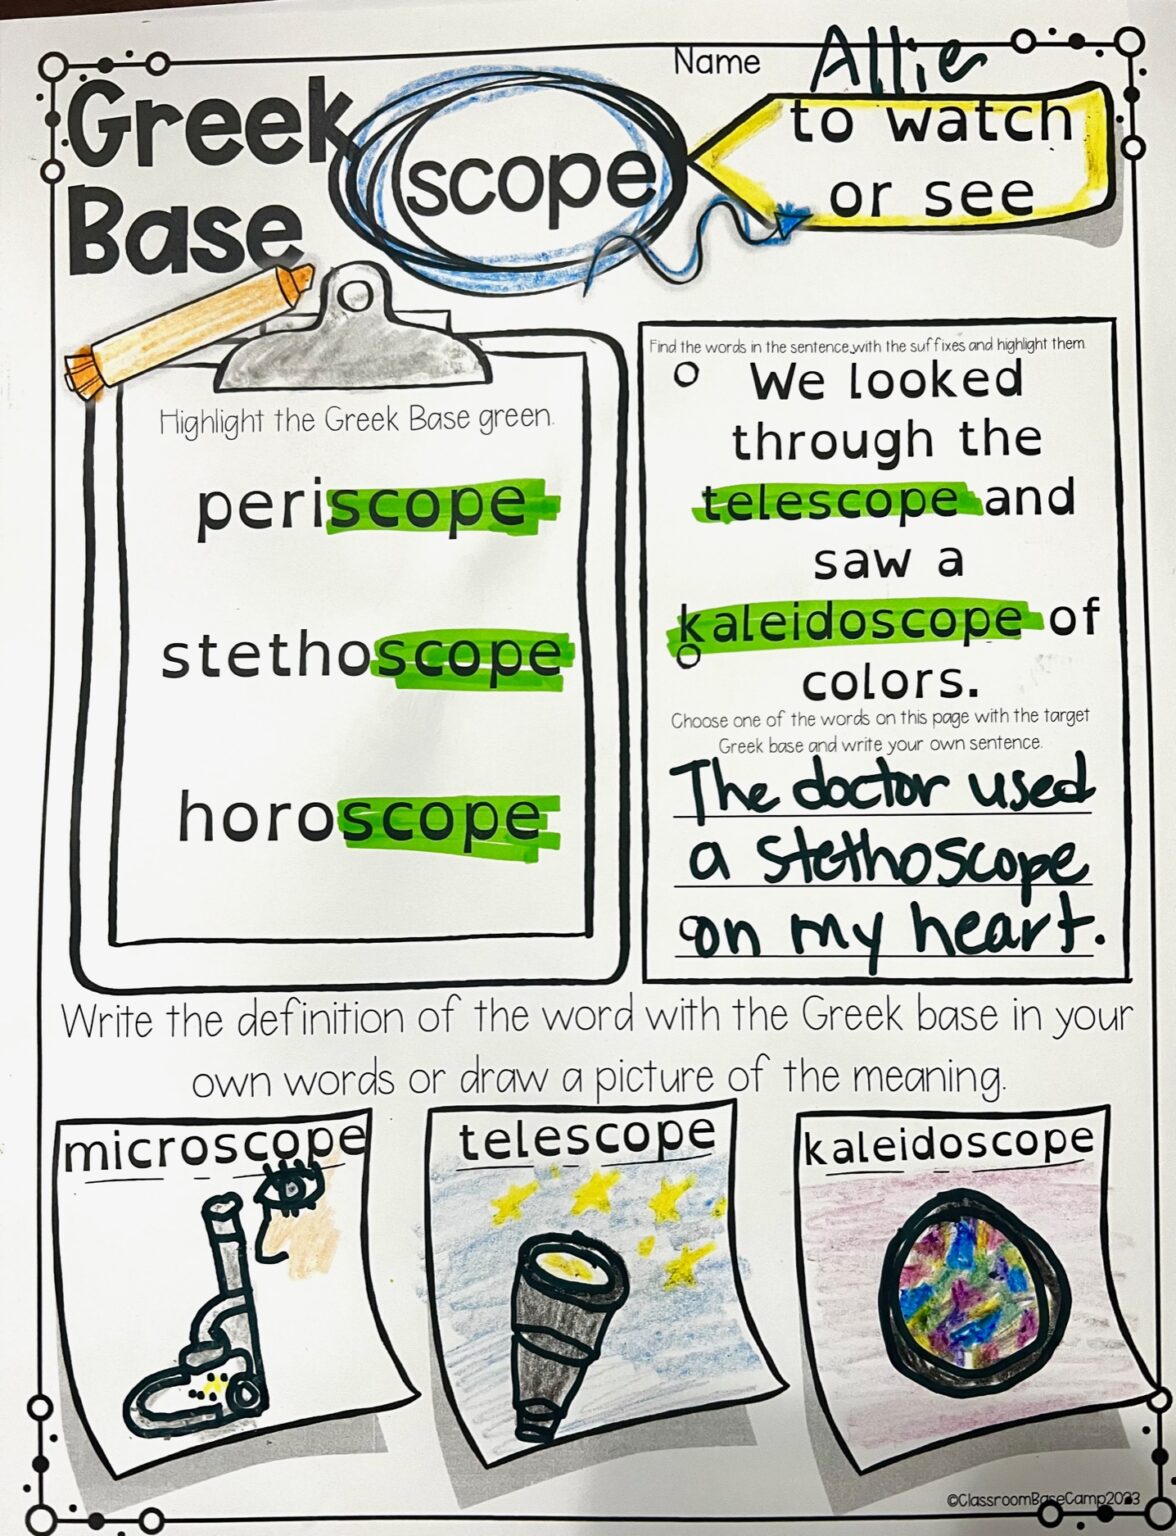 Name Allie
Greek
Base
scope
to watch
or see
Highlight the Greek Base green.
periscope
stethoscope
horoscope
Find the words in the sentence,with the suffixes and highlight them.
We looked
through the
telescope and
saw a
kaleidoscope of
colors.
Choose one of the words on this page with the target
Greek base and write your own sentence.
The doctor used
a stethoscope
on my heart.
Write the definition of the word with the Greek base in your
own words or draw a picture of the meaning.
microscope
telescope
kaleidoscope
©ClassroomBaseCamp2023